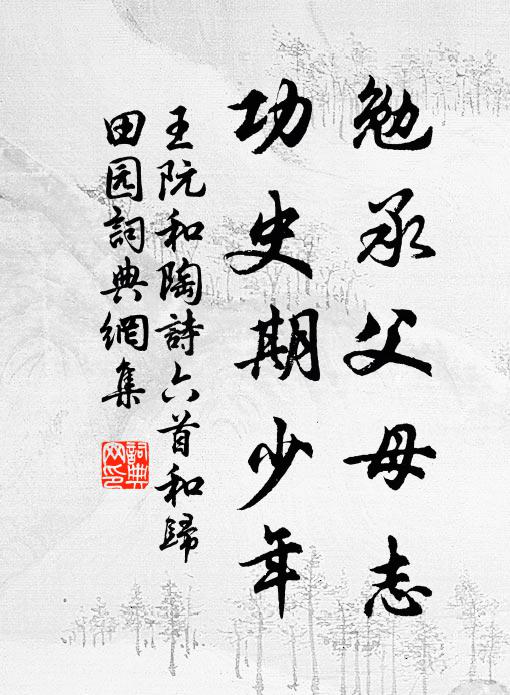 勉承父母志
功史期少年
王阮和陶詩六首和歸
田园詞典網集
詞典網印